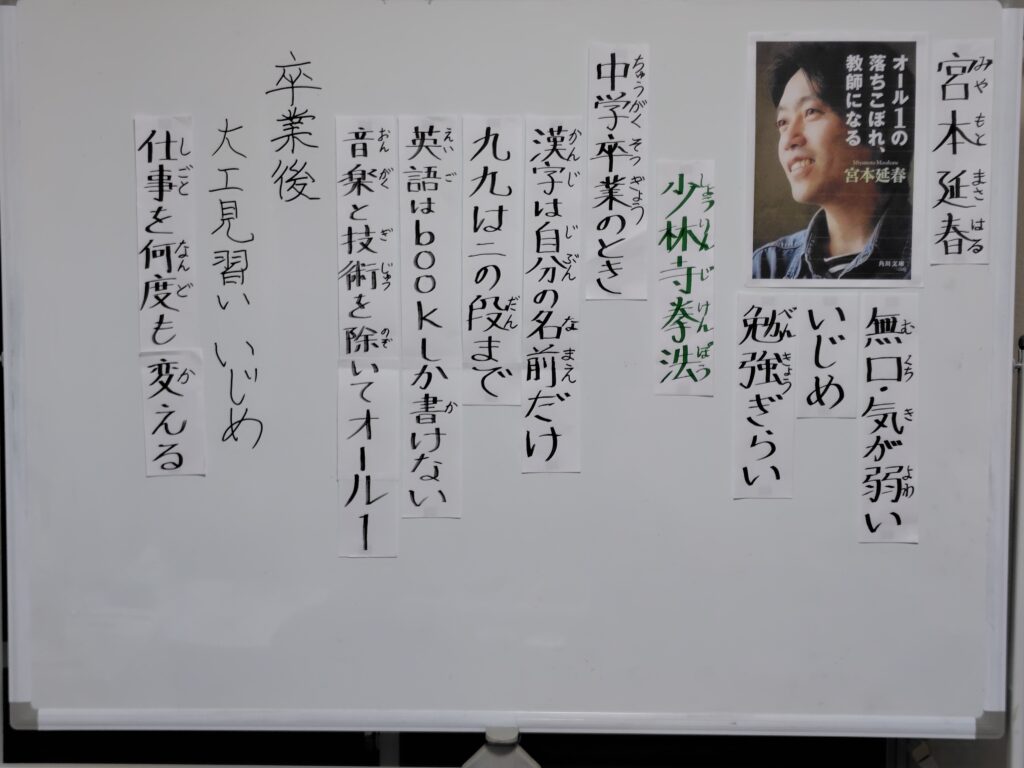 宮本延春
みやもとまさはる
オール1の
落ちこぼれ、
教師になる
Miyamoto Masaharu
宮本延春
角川文庫
無口・気が弱い
むくちきよわ
いじめ
勉強ぎらい
べんきょう
少林寺拳法
しょうりんじけんぽう
中学卒業のとき
ちゅうがくそつぎょう
漢字は自分の名前だけ
かんじじぶんなまえ
九九は二の段まで
だん
英語はbookしか書けない
えいごか
音楽と技術を除いてオール1
おんがくぎじゅつのぞ
卒業後
大工見習い いじめ
仕事を何度も変える
しごとなんどか